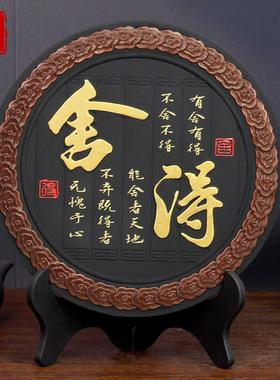 舍
得
有舍有得
不舍不得
能舍者天地
不弃既得者
无愧于心